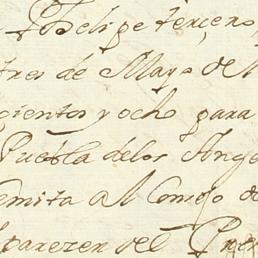 Phelipe terçero,
tres de Mayo de
çientos y ocho para
Puebla delos Ange
emita al Consejo de
parezer del Pres